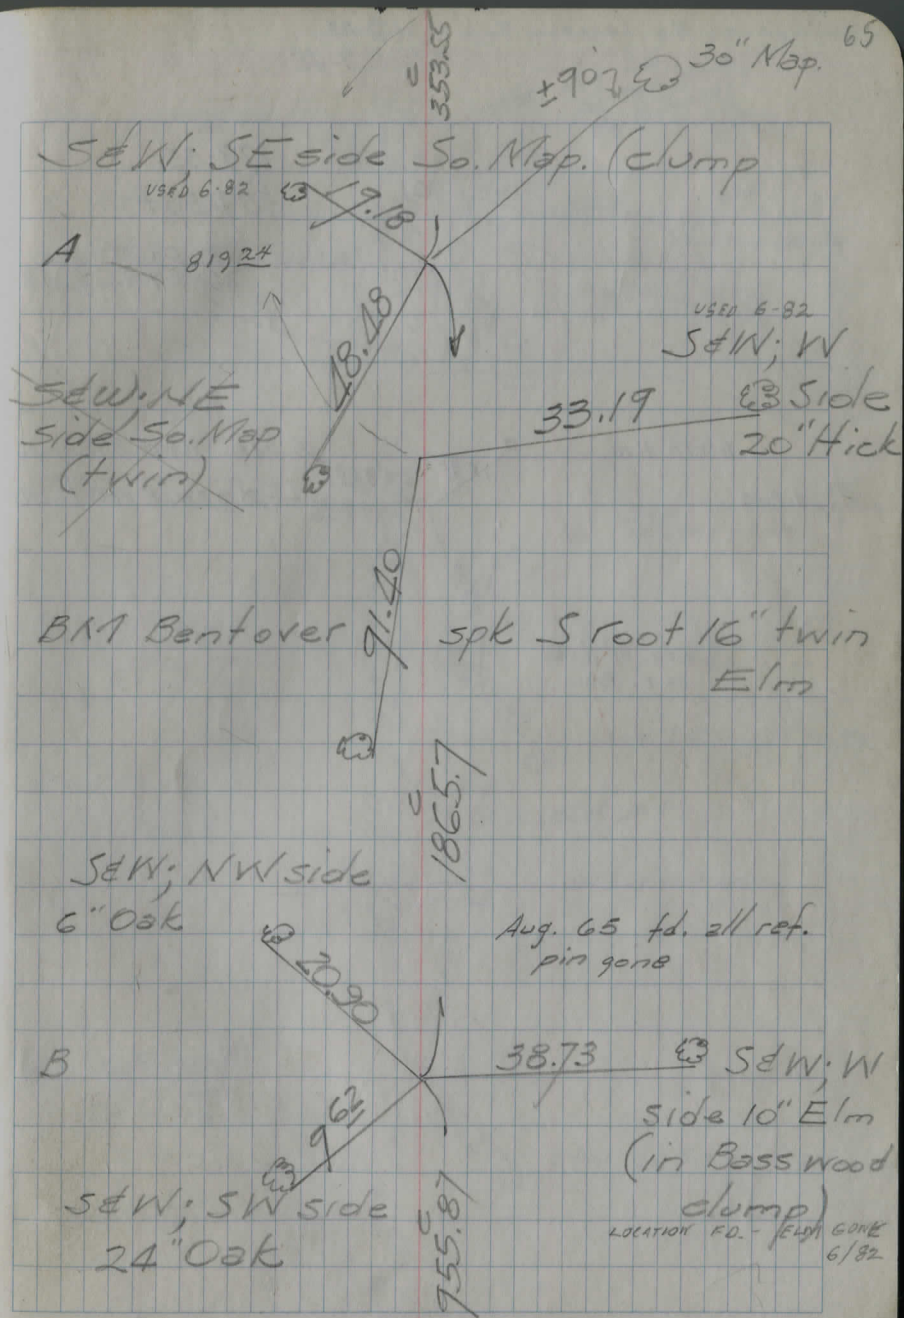 65
353.55
±90'
30" Map.
S&W; SE side So. Map. (clump
USED 6-82
9.18
A
819 24
48.48
USED 6-82
S&W; W
Side
20" Hick
33.19
S&W; NE
side So. Map
(twin)
91.40
BM Bentover spk S root 16" twin
Elm
1865.7
S&W; NW side
6" Oak
Aug. 65 fd. all ref.
pin gone
20.90
B
38.73
S&W; W
side 10" Elm
(in Basswood
clump)
LOCATION FD. - ELM GONE
6/82
9 62
S&W; SW side
24" Oak
955.87